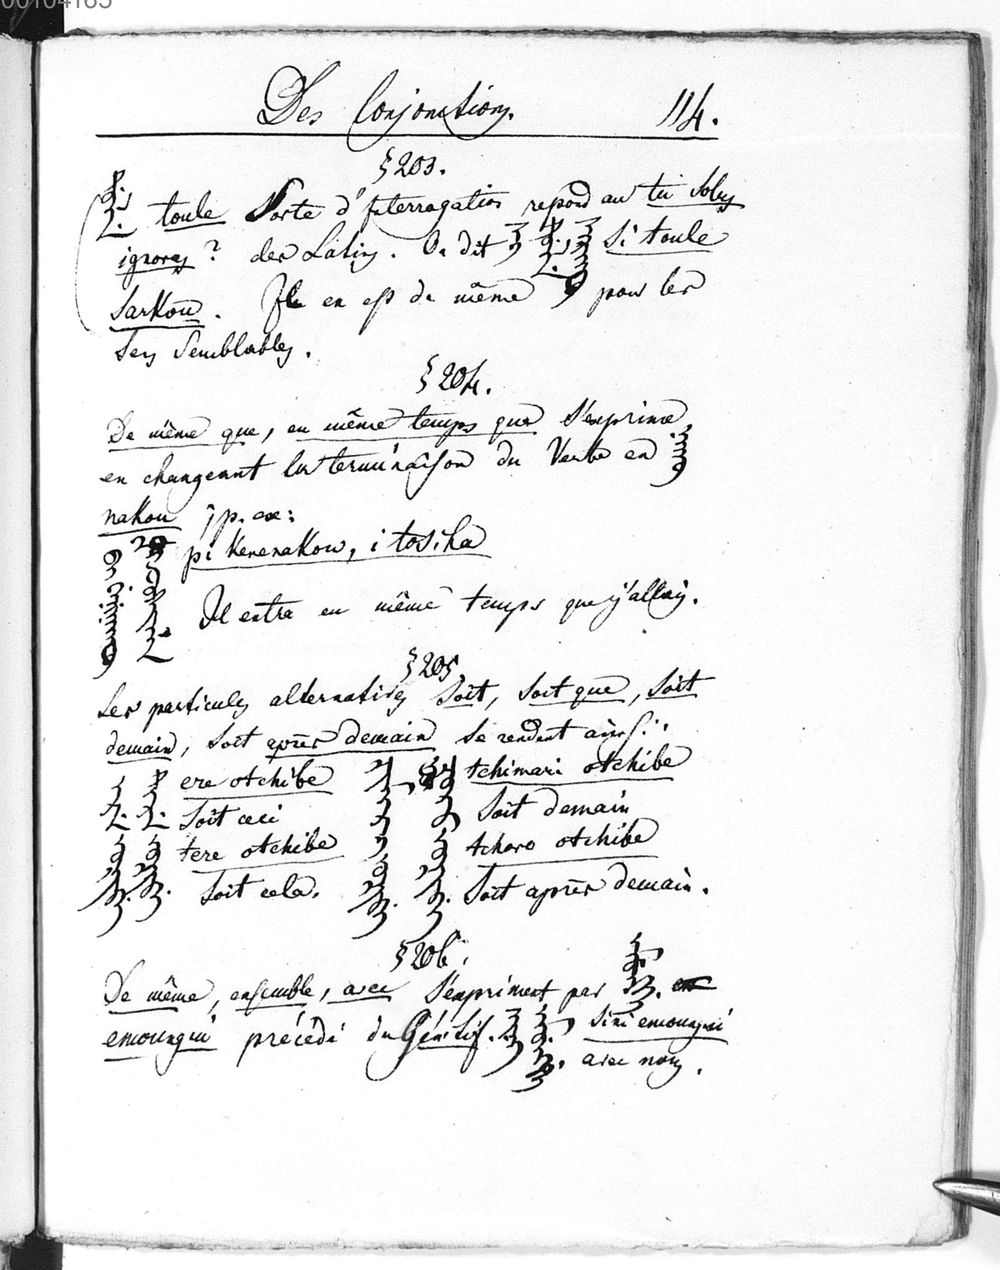 00104165
Des Conjonctions. 114.
§ 203.
toule Sorte d'Iterrogation repond au tu Solus
ignoras? des Latins. On dit si toule
sarkou. Il en est de même pour les
Sens Semblables.
§ 204.
De même que, en même temps que s'exprime
en changeant la terminaison du Verbe en
nakou; p. ex:
pi kenenakou, i tosika
Il entra en même temps que j'allais.
§ 205.
Les particules alternatives Soit, soit que, soit
demain, soit après demain se rendent ainsi:
ere otchibe tchimari otchibe
Soit ceci Soit demain
tere otchibe tchoro otchibe
Soit cela. Soit après demain.
§ 206.
De même, ensemble, avec s'expriment par
emoungui précédé du Génitif. Sini emoungui
avec nous.